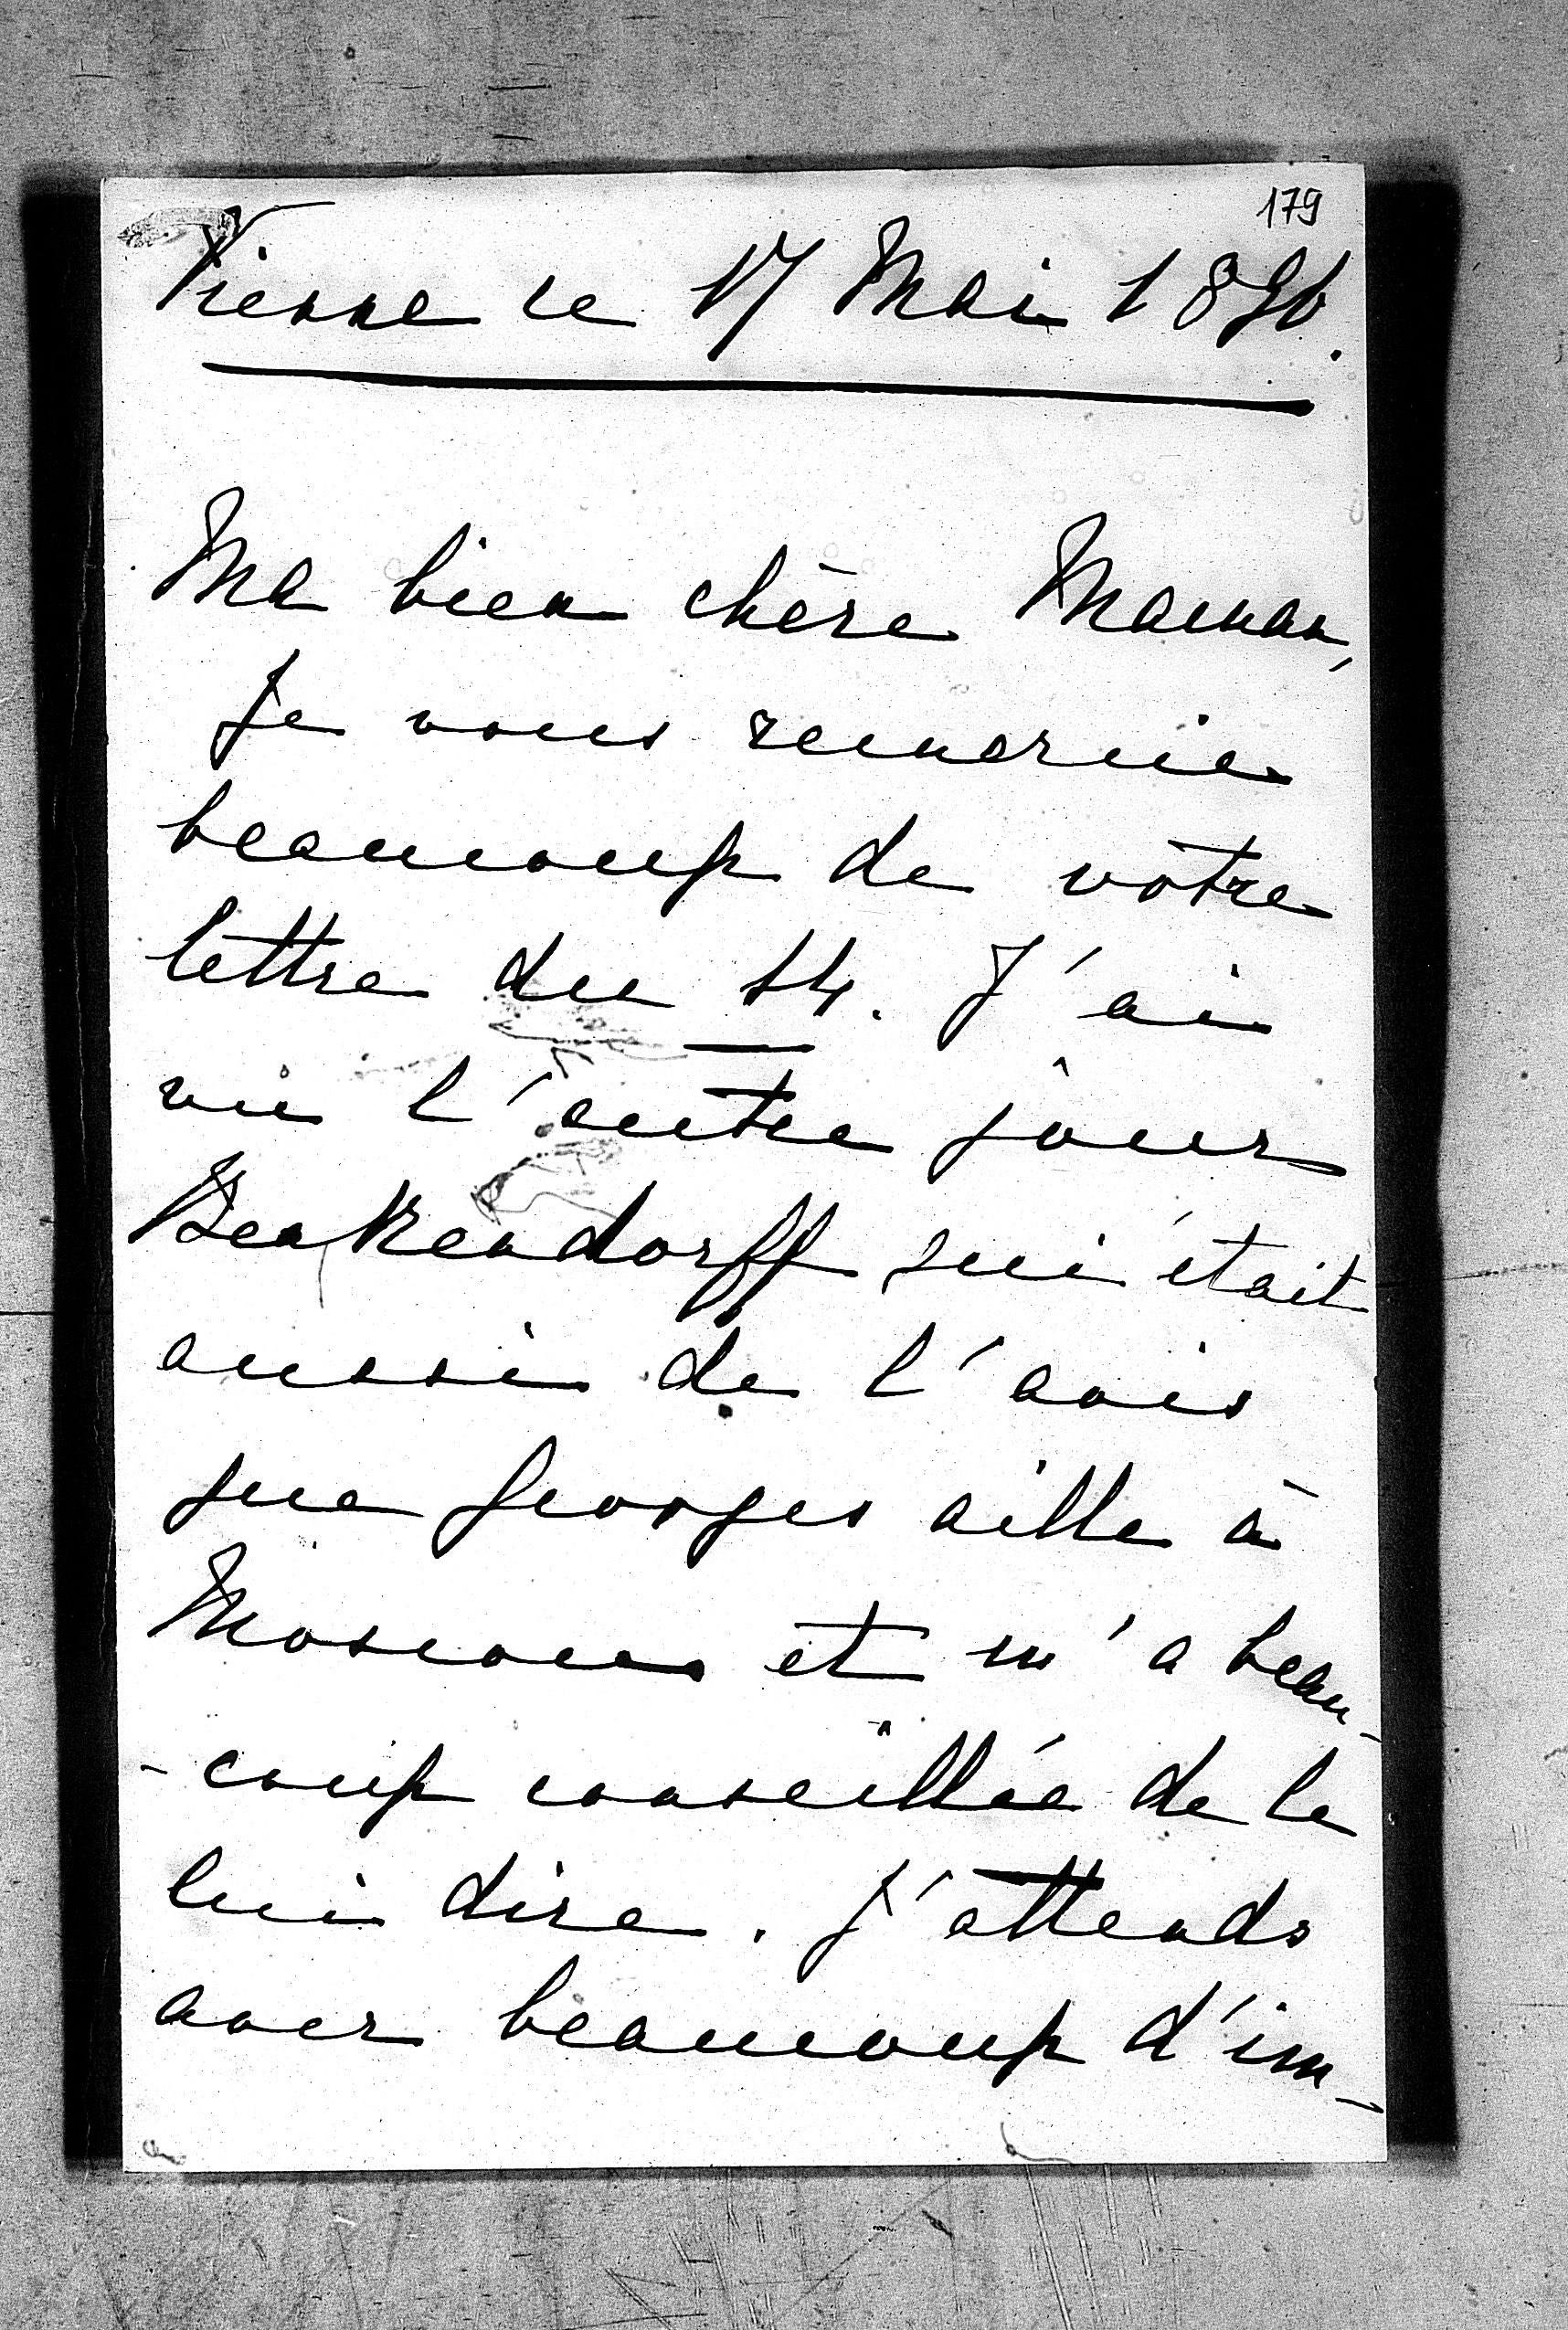 179
Vienne le 17 Mai 1896.
Ma bien chère Maman,
Je vous remercie
beaucoup de votre
lettre du 14. J'ai
vu l'autre jour
Benkendorff qui était
aussi de l'avis
que Georges aille à
Moscou et m'a beau-
-coup conseillée de le
lui dire. J'attends
avec beaucoup d'im-